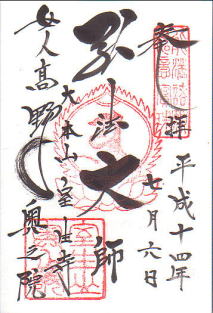 奉拝
平成十四年
七月六日
弘法大師
大本山室生寺
女人高野
奥之院